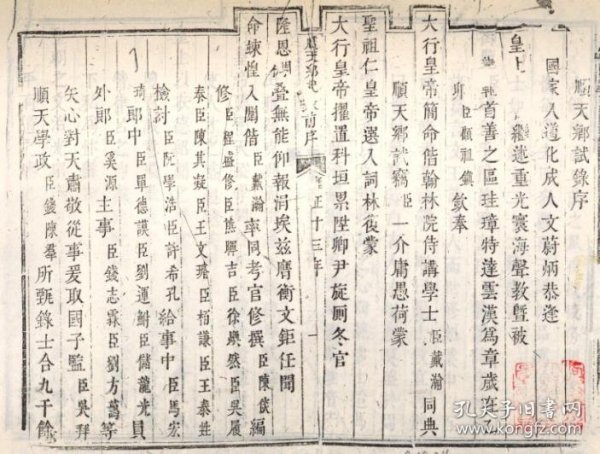 順天鄉試錄序
國家久道化成人文蔚炳恭逢
皇上 繼述重光寰海聲教暨被
首善之區珪璋特達雲漢爲章歲在
卯臣顧祖鎮欽奉
大行皇帝簡命偕翰林院侍講學士臣戴瀚同典
順天鄉試竊臣一介庸愚荷蒙
聖祖仁皇帝選入詞林復蒙
大行皇帝擢置科垣累陞卿尹旋厠冬官
順天鄉 前序 正十三年
隆恩 疊無能仰報涓埃茲膺衡文鉅任聞
命悚惶入闈偕臣戴瀚率同考官修撰臣陳倓編
修臣程盛修臣熊暉吉臣徐 然臣吳履
泰臣陳其凝臣王文璿臣柏謙臣王泰甡
檢討臣阮學浩臣許希孔給事中臣馬宏
琦郎中臣單德謨臣劉運鮒臣儲龍光員
外郎臣奚源主事臣錢志霖臣劉方藹等
矢心對天肅敬從事爰取國子監臣吳拜
順天學政臣錢陳羣所甄錄士合九千餘
孔夫子旧书网